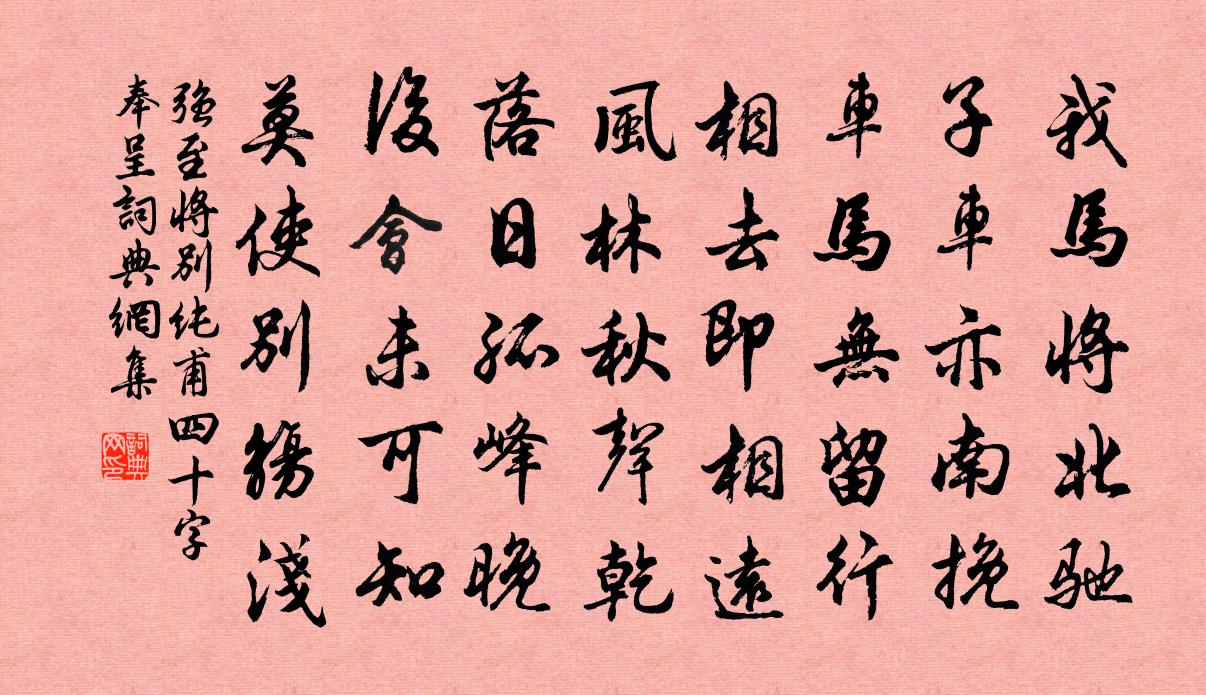 我馬將北馳
子車亦南挽
車馬無留行
相去即相遠
風林秋聲乾
落日孤峰晚
後會未可知
莫使別觴淺
強至將別純甫四十字
奉呈詞典網集
詞典網印